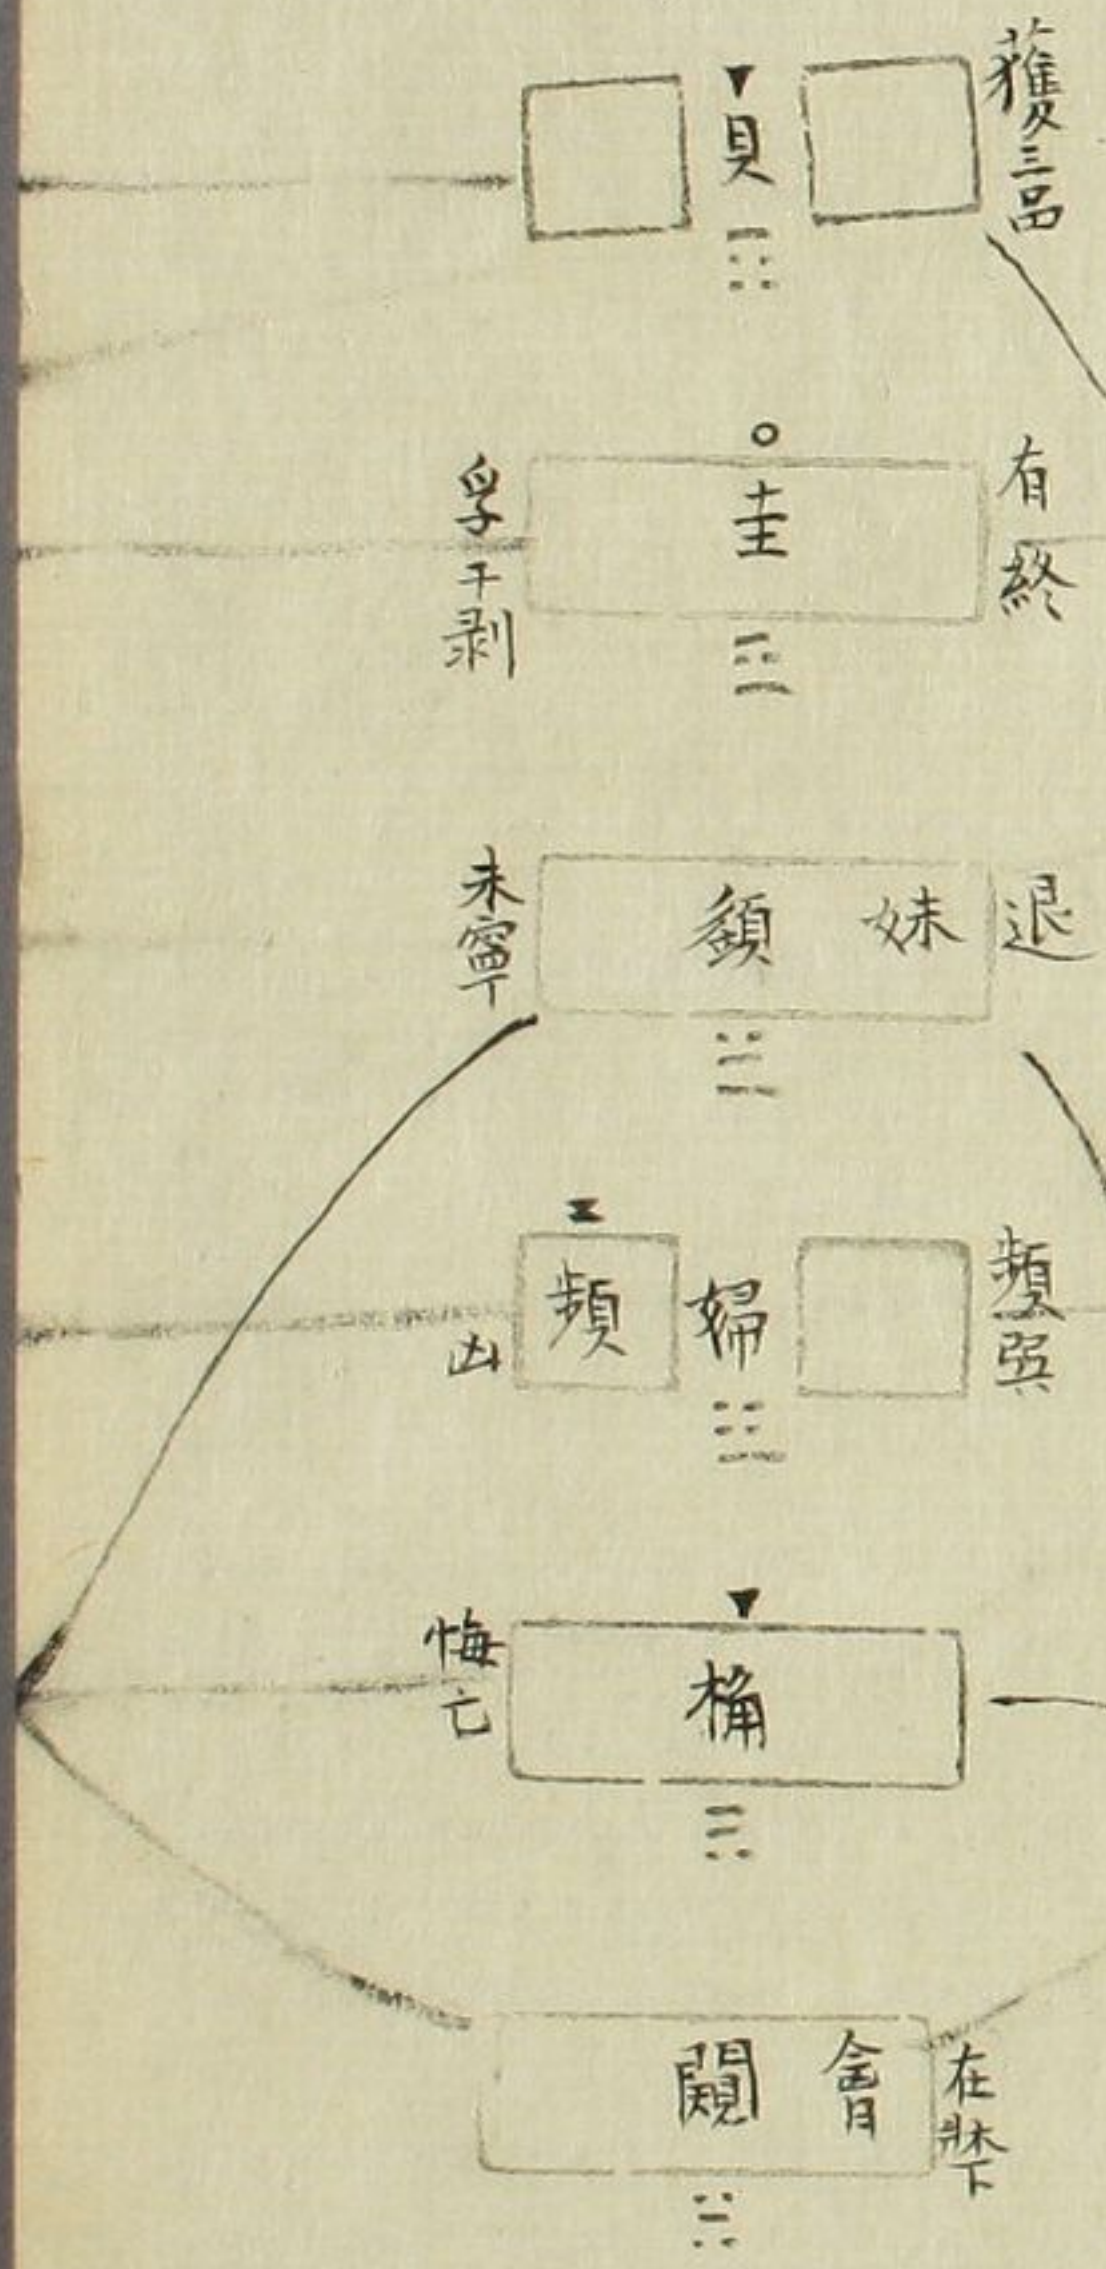 獲三品
貝
有終
圭
孚于剥
退
妹
未寧
頻巽
婦
頻
凶
桷
悔亡
在牀下
會